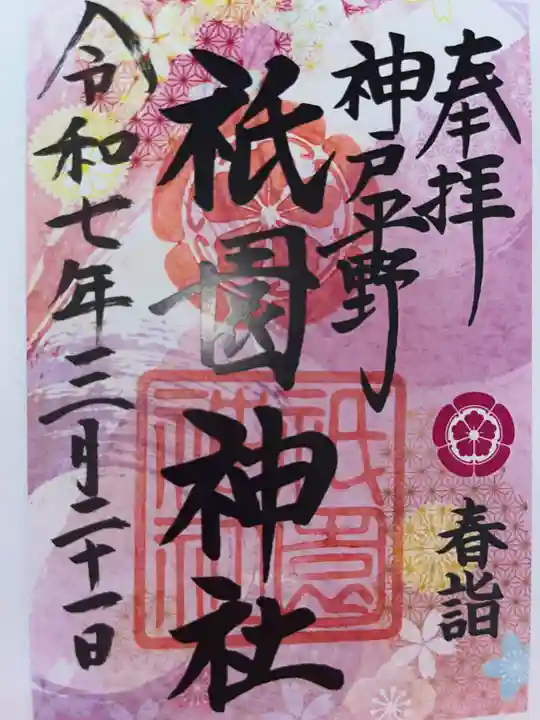 奉拝
春詣
神戸平野
祇園神社
祇園神社
令和七年三月二十一日